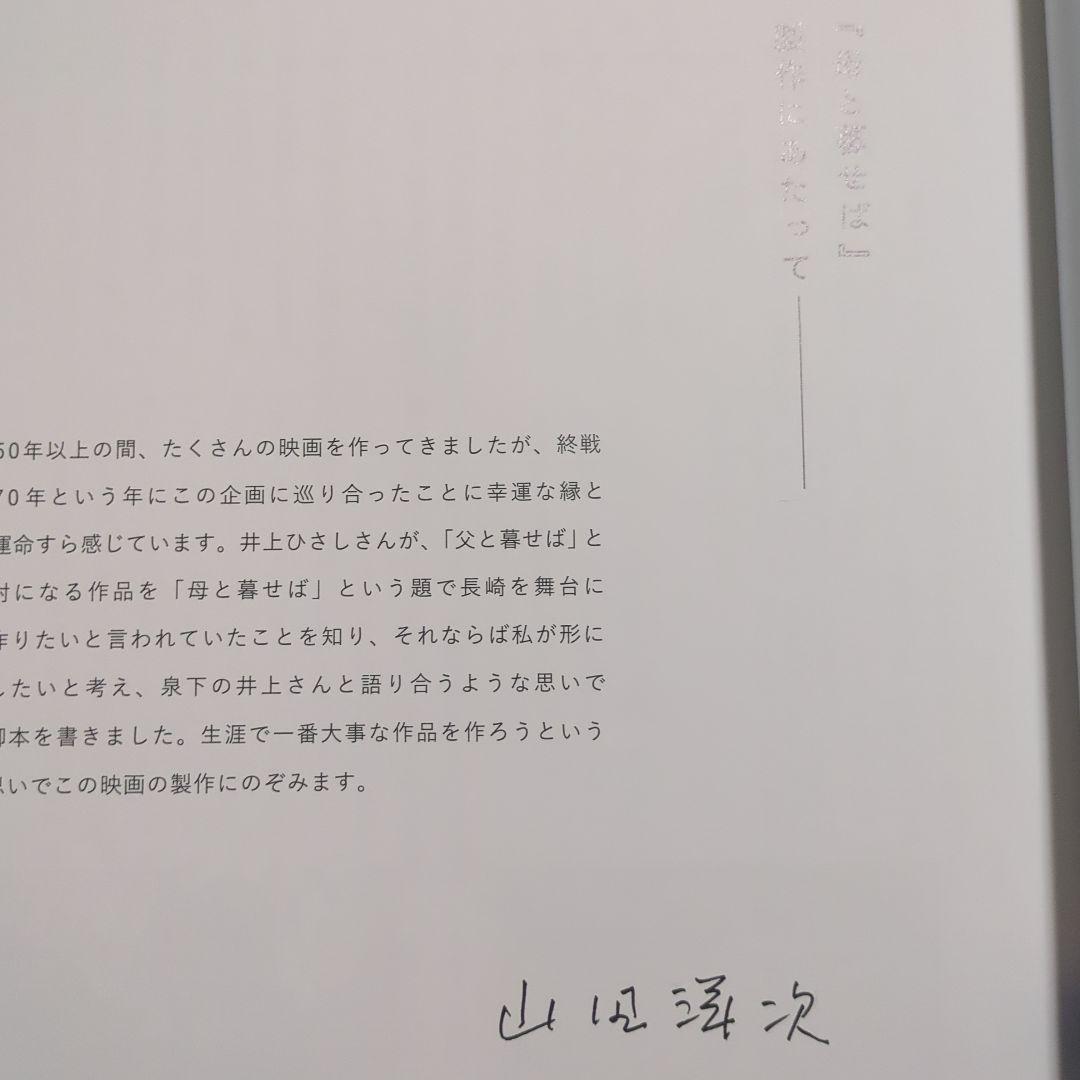 『母と暮せば』
製作にあたって
50年以上の間、たくさんの映画を作ってきましたが、終戦
70年という年にこの企画に巡り合ったことに幸運な縁と
運命すら感じています。井上ひさしさんが、「父と暮せば」と
対になる作品を「母と暮せば」という題で長崎を舞台に
作りたいと言われていたことを知り、それならば私が形に
したいと考え、泉下の井上さんと語り合うような思いで
脚本を書きました。生涯で一番大事な作品を作ろうという
思いでこの映画の製作にのぞみます。
山田洋次